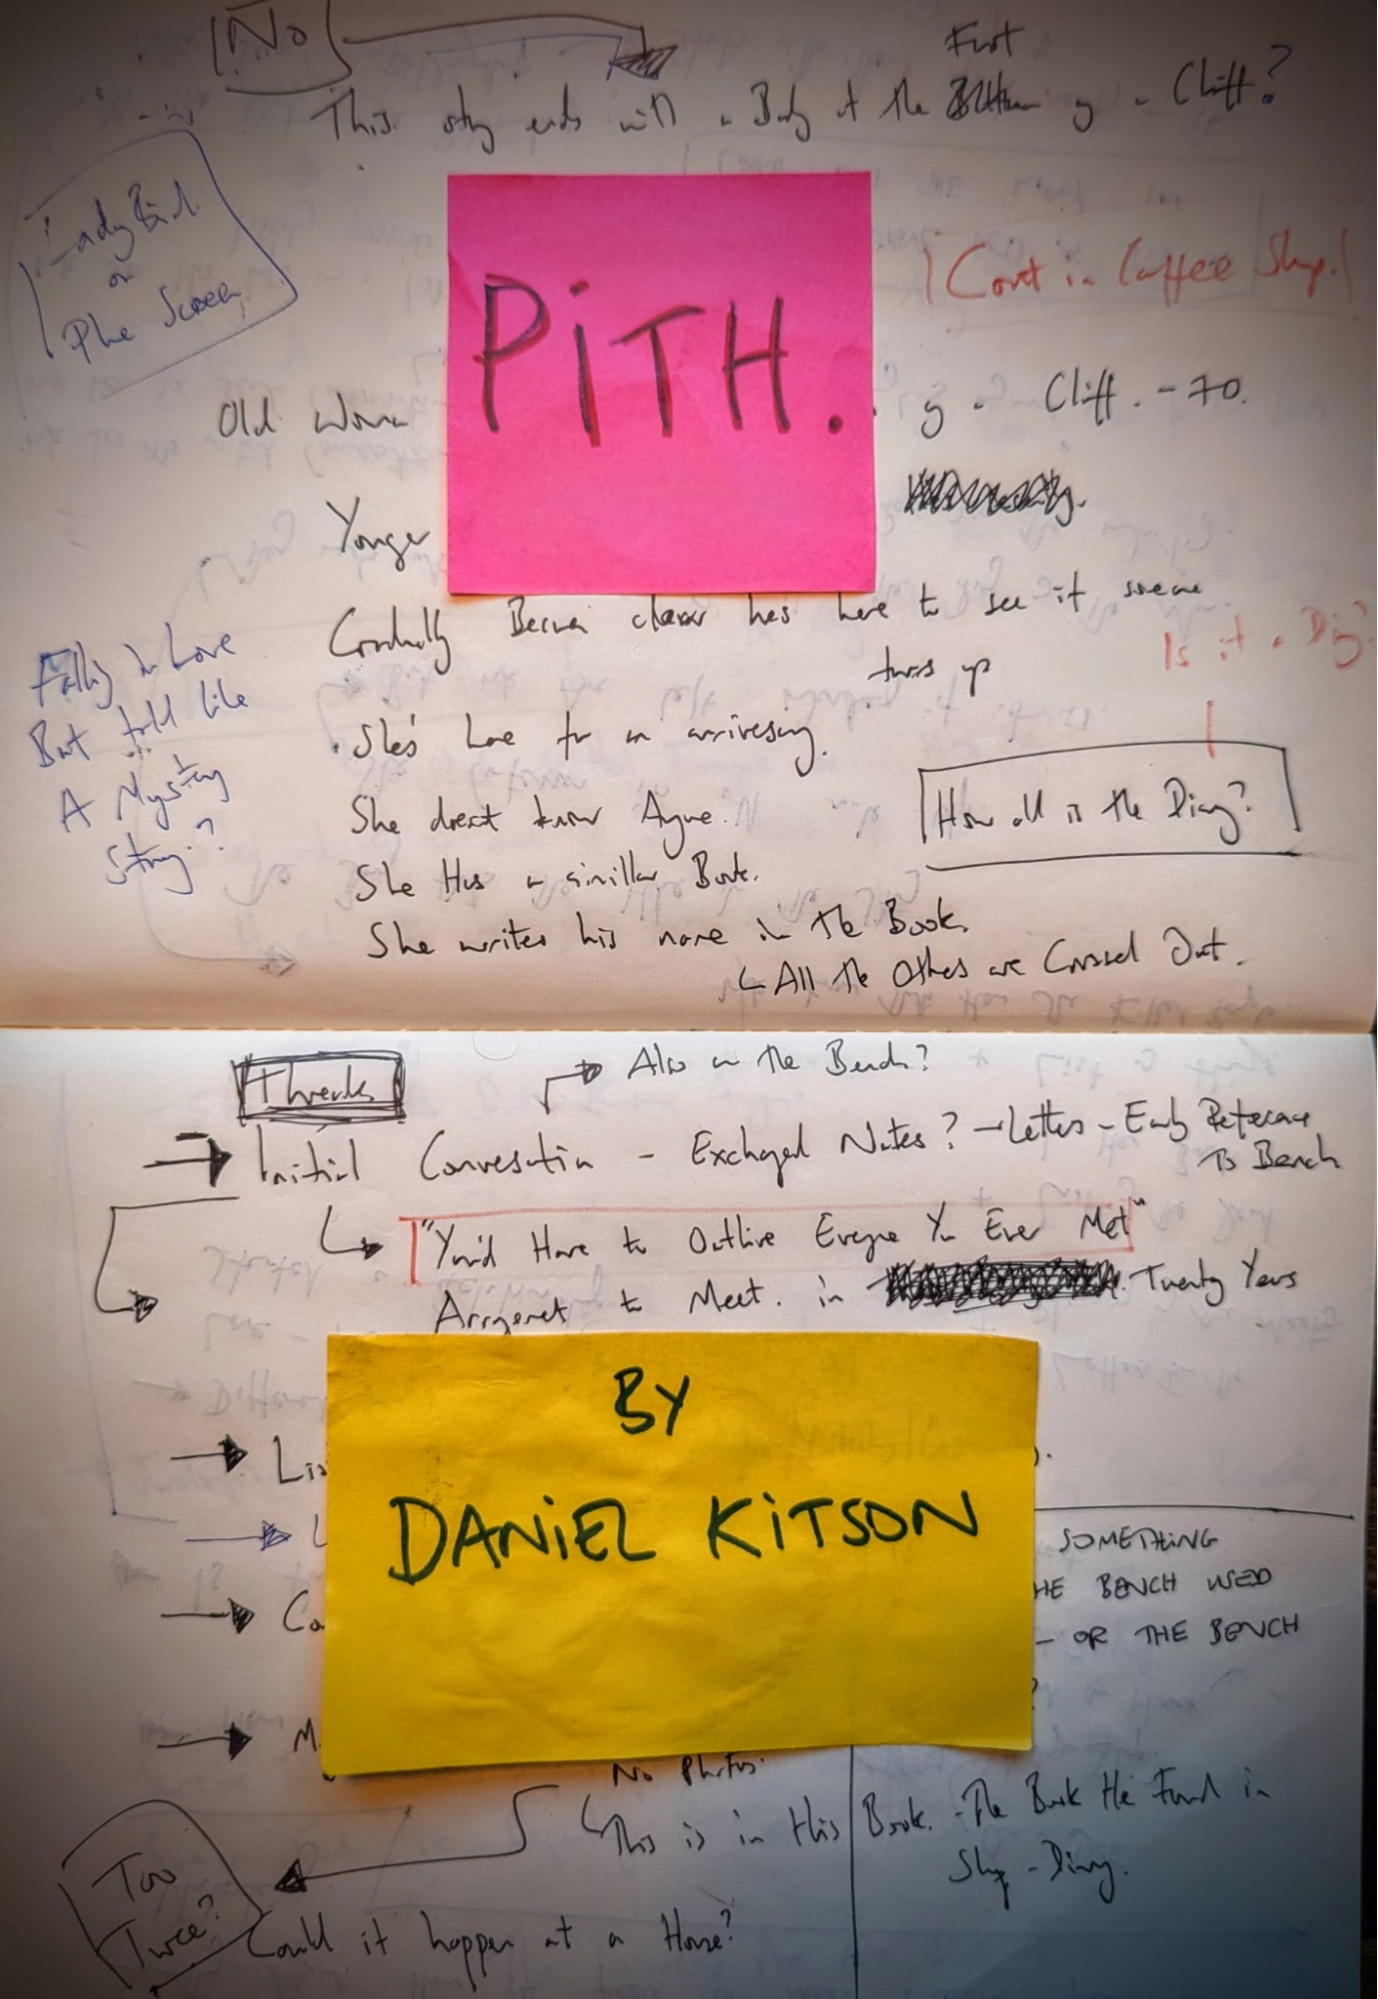 No
First
This story ends with a Body at the Bottom of a Cliff?
Lady Bird
on
The Screen
PiTH.
Coat in Coffee Shop.
Old Woman
of a Cliff. - 70.
Yonger
Gradually Becomes clear hes here to see if someone
turns up
Is it a Diary?
Falling in Love
But told like
A Mystery
Story.?
She's here for an anniversary.
She doesnt know Anyone.
How old is the Diary?
She Has a similar Book.
She writes his name in The Book.
All The Others are Crossed Out.
Threads
Also on The Bench?
Initial Conversation - Exchanged Notes? - Letters - Early Reference
To Bench
"You'd Have to Outlive Everyone You Ever Met"
Arrangement to Meet. in Twenty Years
BY
DANiEL KiTSON
Lis
L
Co
M.
SOMETHiNG
HE BENCH USED
- OR THE BENCH
?
No Photos.
This is in this Book. - The Book He Found in
Shop - Diary.
Too
Twee?
Could it happen at a House?